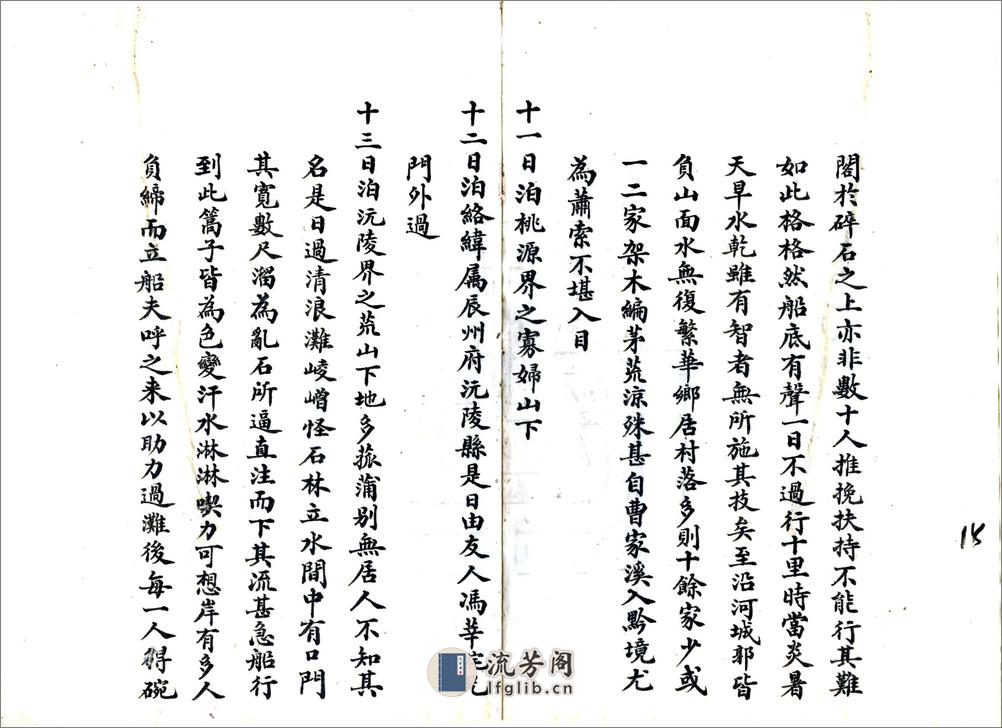 閣於碎石之上亦非數十人推挽扶持不能行其難
如此格格然船底有聲一日不過行十里時當炎暑
天旱水乾雖有智者無所施其技矣至沿河城郭皆
負山面水無復繁華鄉居村落多則十餘家少或
一二家架木編茅荒涼殊甚自曹家溪入黔境尤
為蕭索不堪入目
十一日泊桃源界之寡婦山下
十二日泊絡緯属辰州府沅陵縣是日由友人馮莘
門外過
十三日泊沅陵界之荒山下地多菰蒲別無居人不知其
名是日過清浪灘崚嶒怪石林立水間中有口門
其寬數尺溜為亂石所逼直注而下其流甚急船行
到此篙子皆為色變汗水淋淋喫力可想岸有多人
負締而立船夫呼之来以助力過灘後每一人得碗
15
流芳阁
lfglib.cn